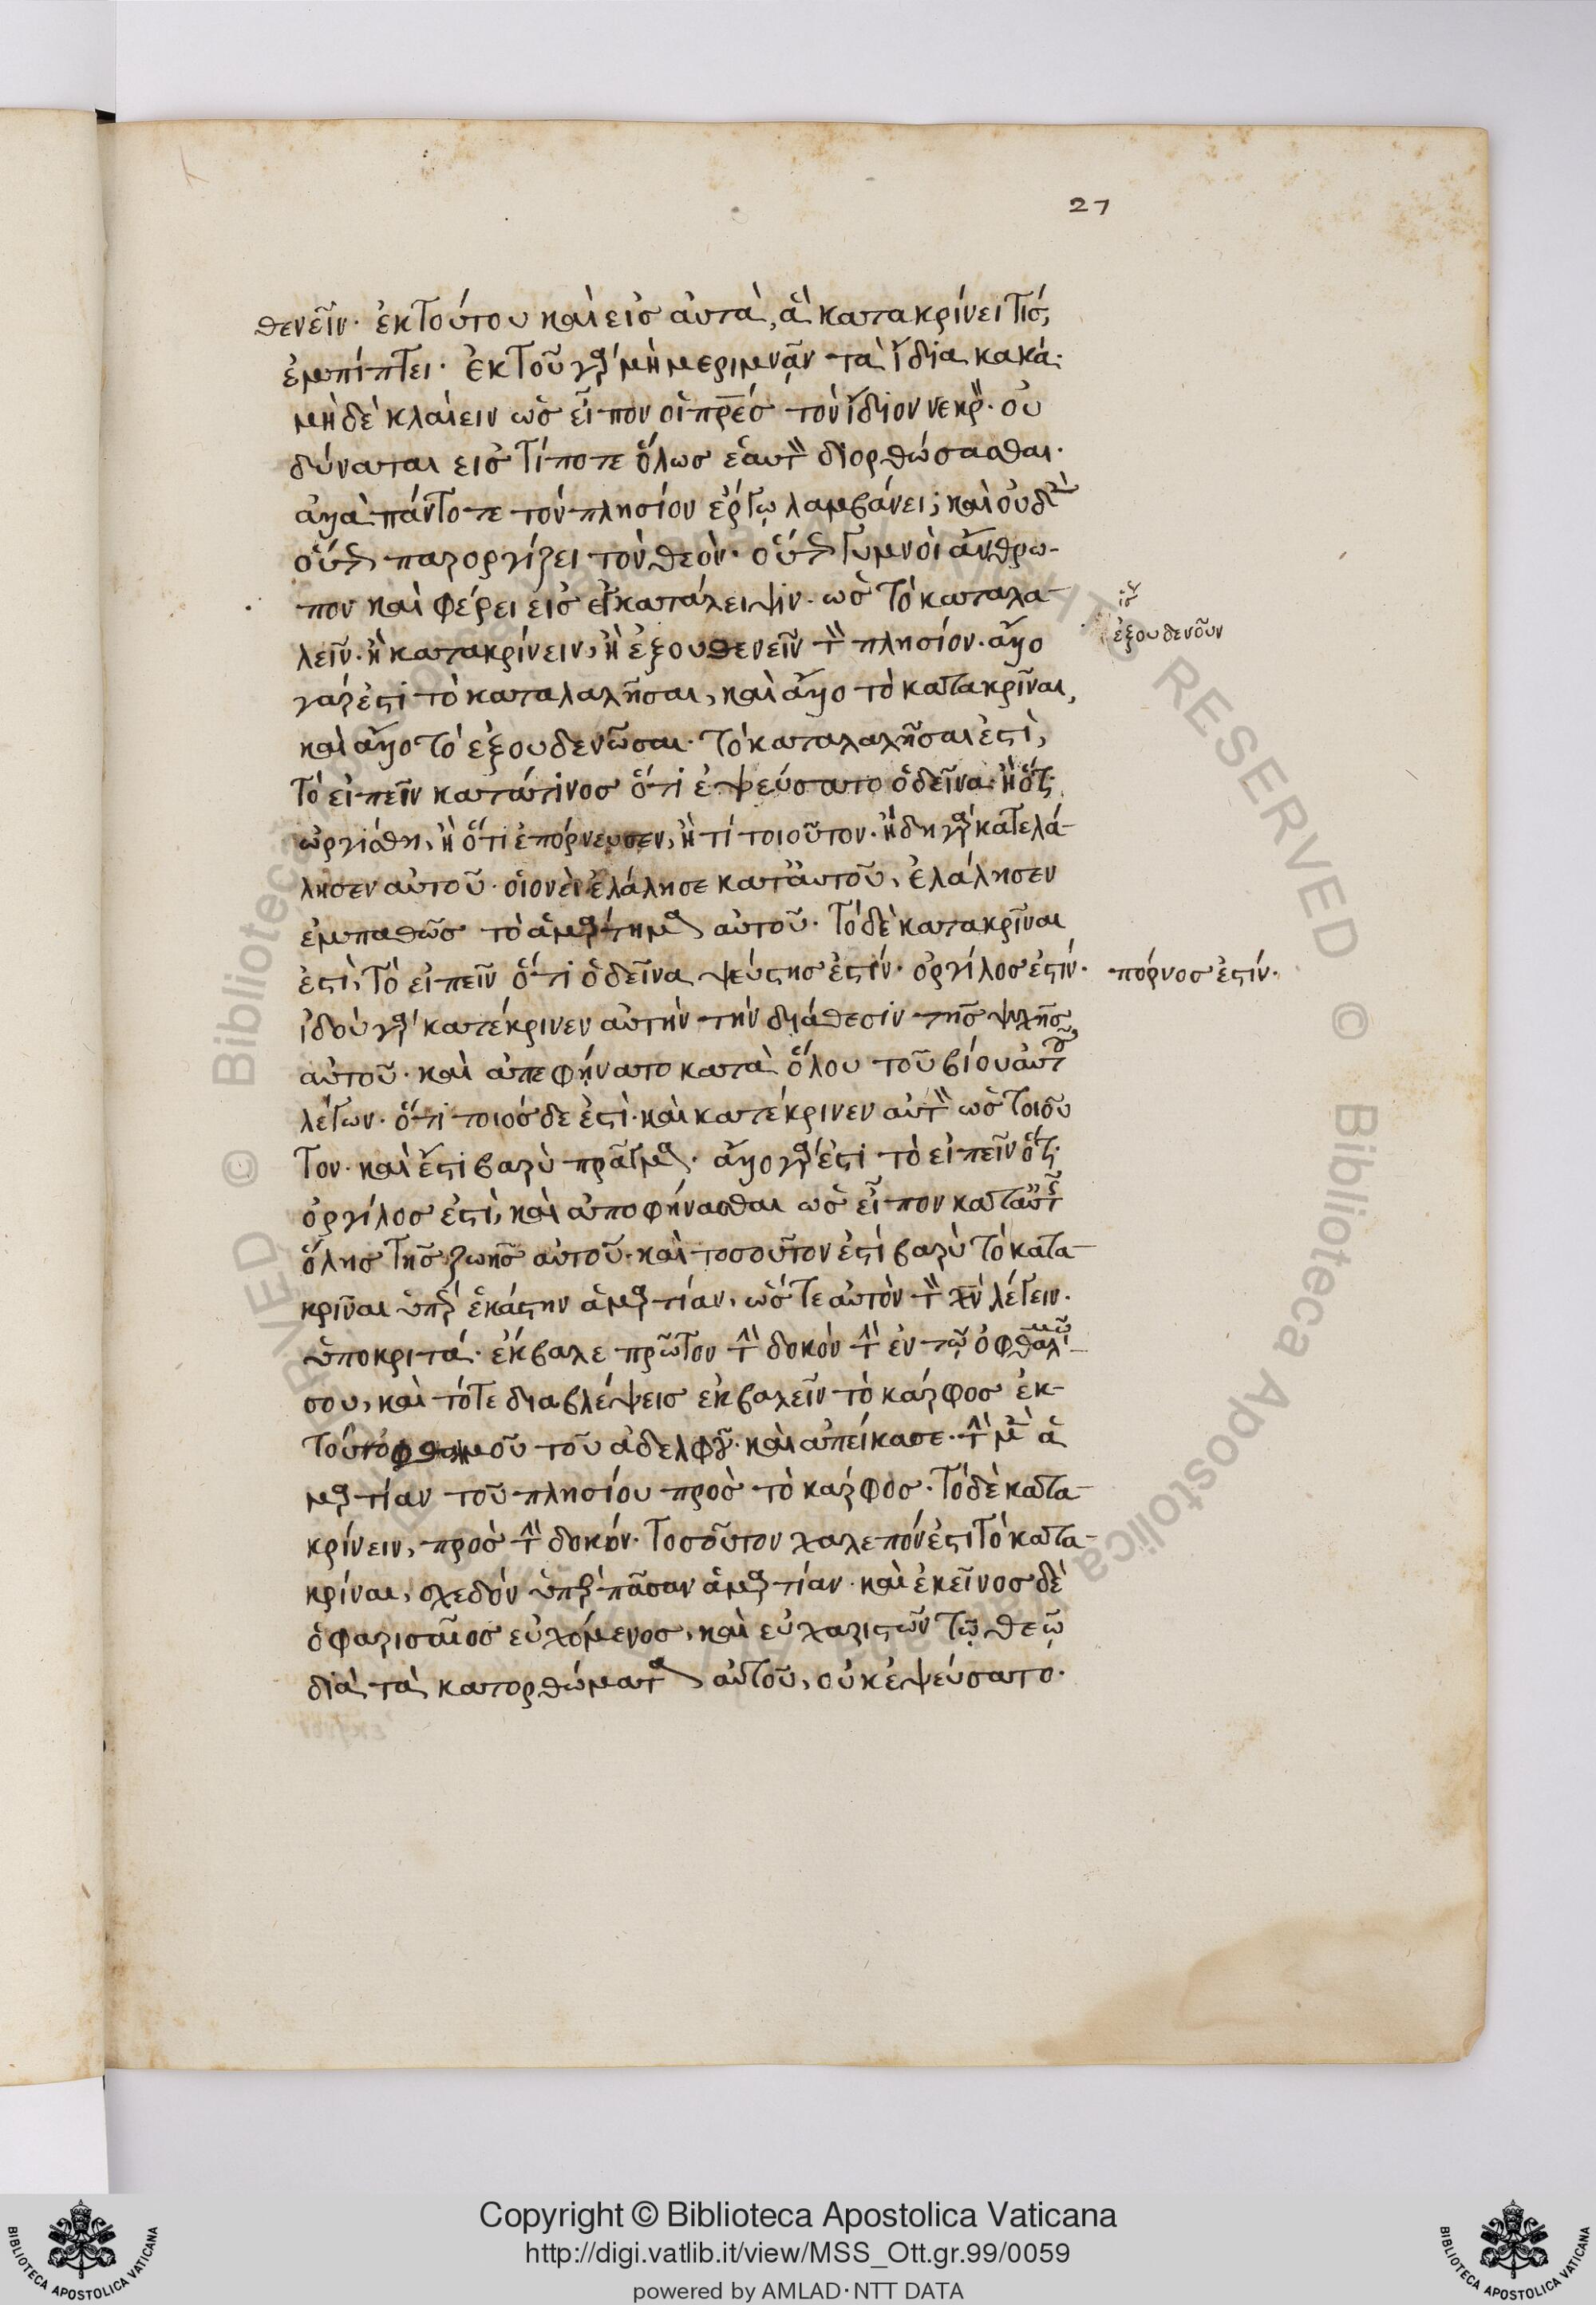 27
θενεῖν· ἐκ τούτου καὶ εἰς αὐτὰ, ἃ κατακρίνει τίς,
ἐμπίπτει· ἐκ τοῦ γὰρ μὴ μεριμνᾶν τὰ ἴδια κακά·
μὴ δὲ κλαίειν ὡς εἶπον οἱ πρ̅ε̅ς τὸν ἴδιον νεκρ· οὐ
δύναται εἰς τίποτε ὅλως ἑαυτ διορθώσασθαι·
ἀλλὰ πάντοτε τὸν πλησίον ἐργω λαμβάνει; καὶ οὐδὲν
οὕτως παροργίζει τὸν θεὸν· οὕτως γυμνοὶ ἄνθρω-
πον καὶ φέρει εἰς ἐγκατάλειψιν· ὡς τὸ καταλα-
λεῖν· ἢ κατακρίνειν, ἢ ἐξουθενεῖν τὸν πλησίον· ἄλλο
ἐξουδενοῦν
γάρ ἐστι τὸ καταλαλῆσαι, καὶ ἄλλο τὸ κατακρῖναι,
καὶ ἄλλο τὸ ἐξουδενῶσαι· τὸ καταλαλῆσαι ἐστὶ,
τὸ εἰπεῖν κατά τινος ὅτι ἐψεύσατο ὁ δεῖνα· ἢ ὅτι
ὠργίσθη, ἢ ὅτι ἐπόρνευσεν, ἢ τί τοιοῦτον· ἤδη γὰρ κατελά-
λησεν αὐτοῦ· οἱονεὶ ἐλάλησε κατ' αὐτοῦ, ἐλάλησεν
ἐμπαθῶς τὸ ἁμάρτημα αὐτοῦ· τὸ δὲ κατακρῖναι
ἐστὶ, τὸ εἰπεῖν ὅτι ὁ δεῖνα ψεύστης ἐστίν· ὀργίλος ἐστιν· πόρνος ἐστίν·
ἰδοὺ γὰρ κατέκρινεν αὐτὴν τὴν διάθεσιν τῆς ψυχῆς
αὐτοῦ· καὶ ἀπεφήνατο κατὰ ὅλου τοῦ βίου αὐτοῦ
λέγων· ὅτι τοιόσδε ἐστὶ· καὶ κατέκρινεν αὐτὸν ὡς τοιοῦ
τον· καὶ ἔστι βαρὺ πρᾶγμα· ἄλλο γάρ ἐστι τὸ εἰπεῖν ὅτι
ὀργίλος ἐστὶ, καὶ ἀποφήνασθαι ὡς εἶπον κατὰ τῆς
ὅλης τῆς ζωῆς αὐτοῦ· καὶ τοσοῦτον ἐστὶ βαρὺ τὸ κατα-
κρῖναι ὑπὲρ ἑκάστην ἁμαρτίαν, ὥς τε αὐτὸν τὸν χ̅ν̅ λέγειν·
ὑποκριτά· ἔκβαλε πρῶτον τὴν δοκὸν τὴν ἐν τῷ ὀφθαλμῷ
σου, καὶ τότε διαβλέψεις ἐκβαλεῖν τὸ κάρφος ἐκ
τοῦ ὀφθαλμοῦ τοῦ ἀδελφοῦ· καὶ ἀπείκασε· τὴν μὲν ἁ
μαρτίαν τοῦ πλησίου πρὸς τὸ κάρφος· τὸ δὲ κατα-
κρίνειν, πρὸς τὴν δοκόν· τοσοῦτον χαλεπόν ἐστι τὸ κατα-
κρίναι, σχεδόν ὑπὲρ πᾶσαν ἁμαρτίαν· καὶ ἐκεῖνος δὲ
ὁ φαρισαῖος εὐχόμενος, καὶ εὐχαριστῶν τῷ θεῷ
διὰ τὰ κατορθώματα αὐτοῦ, οὐκ ἐψεύσατο·
Copyright © Biblioteca Apostolica Vaticana
http://digi.vatlib.it/view/MSS_Ott.gr.99/0059
powered by AMLAD·NTT DATA